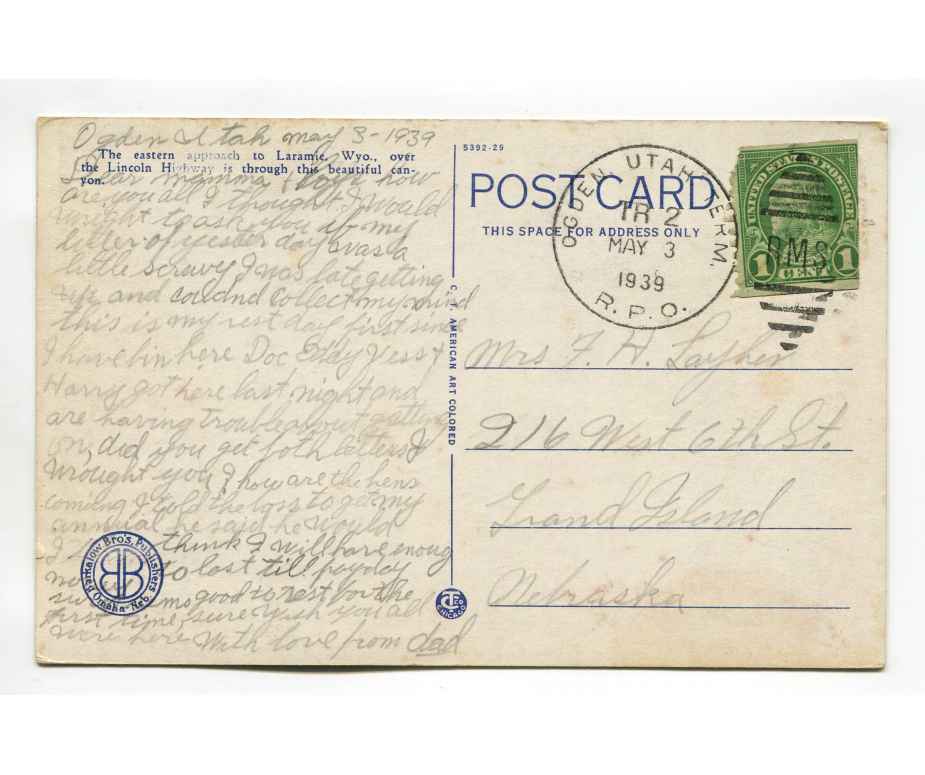 Ogden Utah may 3-1939
The eastern approach to Laramie, Wyo., over
the Lincoln Highway is through this beautiful can-
yon.
Dear mamma & how
are you all I thought I would
wright to ask you if my
letter of yester day was a
little scrwy I was late getting
up and cou'nd collect my mind
this is my rest day first since
I have bin here Doc Eddy Vess &
Harry got here last night and
are having trouble about getting
on, did you get foth letters I
wrought you, how are the hens
coming I told the boss to get my
annual he said he would
I think I will have enoug
to last till payday
good to rest for the
first time, sure wish you all
were here With love from dad
Barkalow Bro's. Publishers
Omaha-Neb.
BB
C. T. AMERICAN ART COLORED
5392-29
POST CARD
THIS SPACE FOR ADDRESS ONLY
OGDEN, UTAH TERM.
TR 2
MAY 3
1939
R.P.O.
RMS
UNITED STATES POSTAGE
1 CENT 1
Mrs F. H. Layher
216 West 6th St.
Grand Island
Nebraska